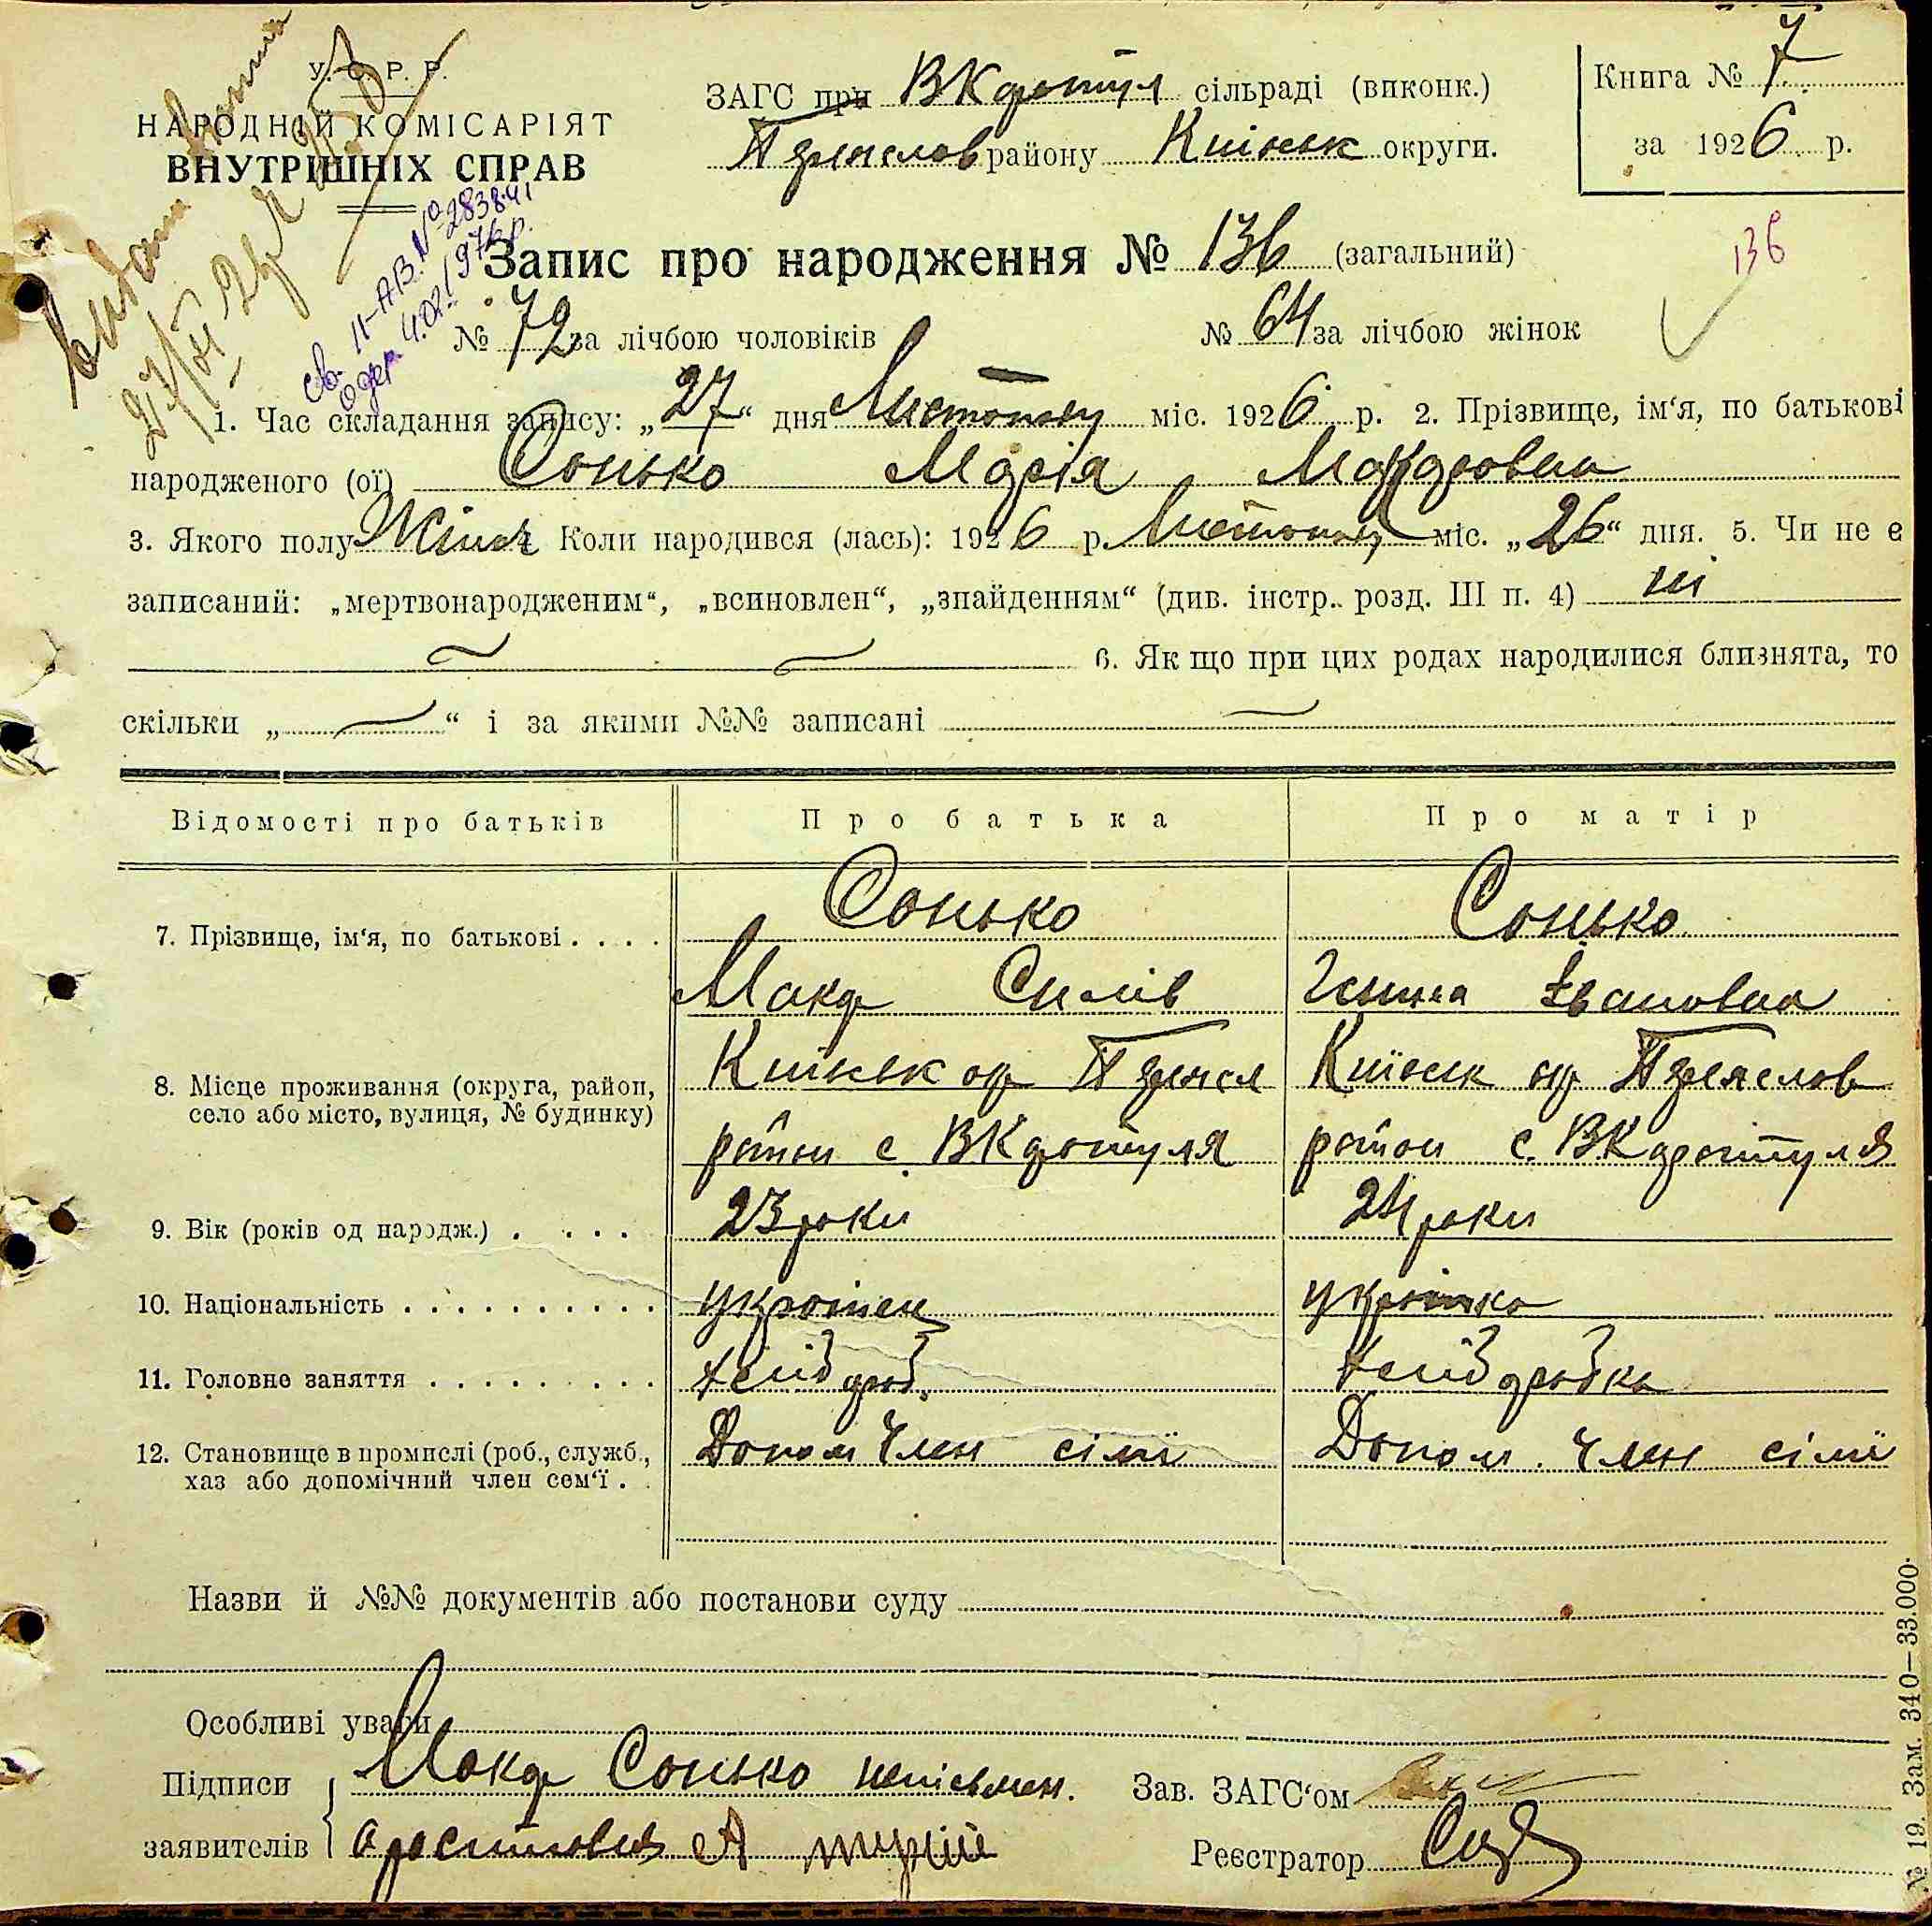 У. С. Р. Р.
НАРОДНІЙ КОМІСАРІЯТ
ВНУТРІШНІХ СПРАВ
ЗАГС при ВКаратул сільраді (виконк.)
Переяслов району Киівск округи.
Книга № 7
за 1926 р.
св. II-АВ. № 283841
одер. 4.02.1976р.
136
Запис про народження № 136 (загальний)
№ 72 за лічбою чоловіків № 64 за лічбою жінок
1. Час складання запису: „27“ дня Листопад міс. 1926 р. 2. Прізвище, ім‘я, по батькові
народженого (ої) Сонько Марія Макаровна
3. Якого полу Жіноч Коли народився (лась): 1926 р. Листопад міс. „26“ дня. 5. Чи не є
записаний: „мертвонародженим“, „всиновлен“, „знайденням“ (див. інстр. розд. III п. 4) ні
6. Як що при цих родах народилися близнята, то
скільки „ “ і за якими №№ записані
Відомості про батьків Про батька Про матір
7. Прізвище, ім‘я, по батькові . . . . Сонько Сонько
Макар Силів Ївановна
8. Місце проживання (округа, район, Киівск ор Переясл Киівск ор Переяслов
село або місто, вулиця, № будинку) район с ВКаратуля район с. ВКаратуля
9. Вік (років од народж.) . . . . 23 роки 24 роки
10. Національність . . . . . . . . . . українец українка
11. Головне заняття . . . . . . . . . хлібороб. хліборобка
12. Становище в промислі (роб., служб., Допом Член сімї Допом. Член сімї
хаз або допомічний член сем‘ї . .
Назви й №№ документів або постанови суду
Особливі уваги
Підписи Макар Сонько неписьмен. Зав. ЗАГС‘ом
заявителів А Реєстратор
№ 19. Зам. 340—33.000.